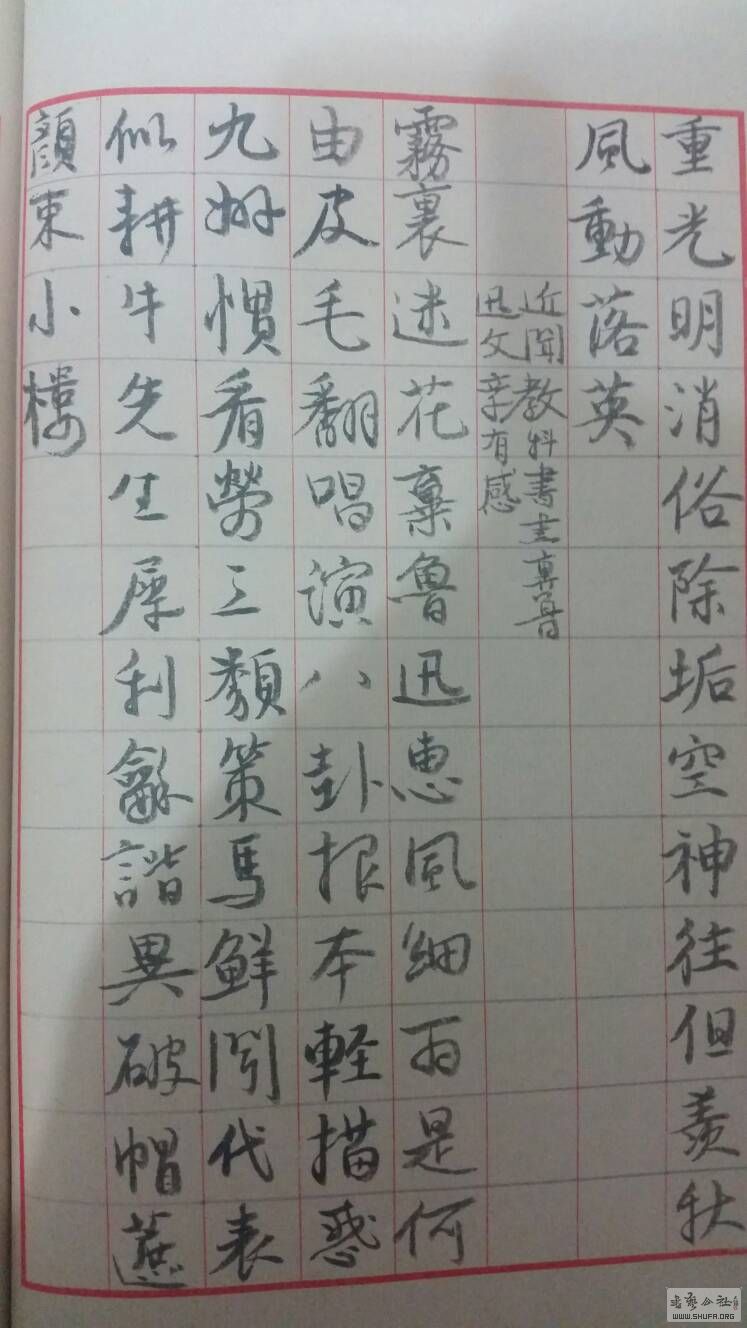 重光明消俗除垢空神往但羨秋
風動落英
近聞教科書主棄魯
迅文章有感
霧裏迷花棄魯迅惠風細雨是何
由皮毛翻唱演八卦根本軽描惑
九惯看勞三類策馬鮮聞代表
似耕牛先生犀利龢諧異破帽遮
顏東小樓
书艺公社
WWW.SHUFA.ORG